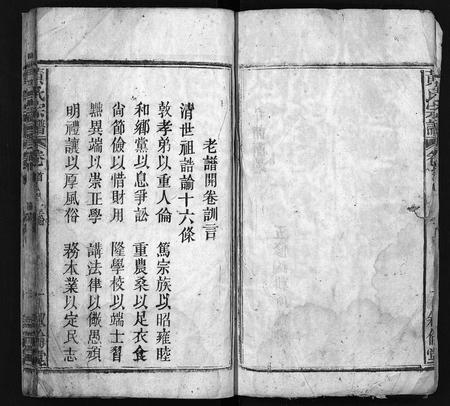 老譜開卷訓言
清世祖誥諭十六條
敦孝弟以重人倫 篤宗族以昭雍睦
和鄉黨以息爭訟 重農桑以足衣食
尚節儉以惜財用 隆學校以端士習
黜異端以崇正學 講法律以儆愚頑
明禮讓以厚風俗 務本業以定民志
氏宗譜 卷首
倫堂